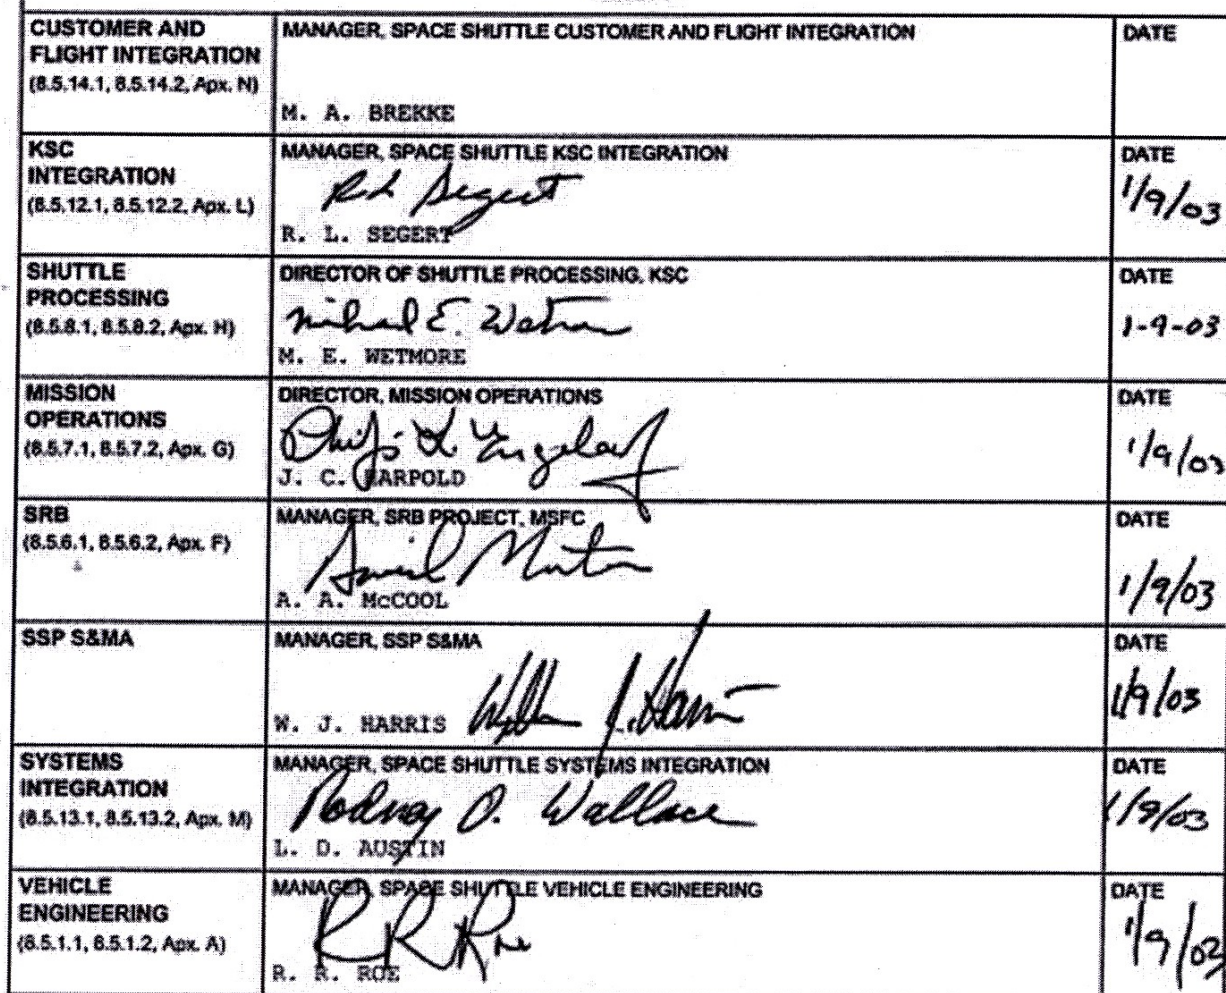 CUSTOMER AND
FLIGHT INTEGRATION
(8.5.14.1, 8.5.14.2, Apx. N)
MANAGER, SPACE SHUTTLE CUSTOMER AND FLIGHT INTEGRATION
M. A. BREKKE
DATE
KSC
INTEGRATION
(8.5.12.1, 8.5.12.2, Apx. L)
MANAGER, SPACE SHUTTLE KSC INTEGRATION
R L Segert
R. L. SEGERT
DATE
1/9/03
SHUTTLE
PROCESSING
(8.5.8.1, 8.5.8.2, Apx. H)
DIRECTOR OF SHUTTLE PROCESSING, KSC
Michael E. Wetmore
M. E. WETMORE
DATE
1-9-03
MISSION
OPERATIONS
(8.5.7.1, 8.5.7.2, Apx. G)
DIRECTOR, MISSION OPERATIONS
Philip L. Engelauf
J. C. HARPOLD
DATE
1/9/03
SRB
(8.5.6.1, 8.5.6.2, Apx. F)
MANAGER, SRB PROJECT, MSFC
Martin
A. A. McCOOL
DATE
1/9/03
SSP S&MA
MANAGER, SSP S&MA
W. J. HARRIS William J. Harris
DATE
1/9/03
SYSTEMS
INTEGRATION
(8.5.13.1, 8.5.13.2, Apx. M)
MANAGER, SPACE SHUTTLE SYSTEMS INTEGRATION
Rodney O. Wallace
L. D. AUSTIN
DATE
1/9/03
VEHICLE
ENGINEERING
(8.5.1.1, 8.5.1.2, Apx. A)
MANAGER, SPACE SHUTTLE VEHICLE ENGINEERING
R R Roe
R. R. ROE
DATE
1/9/03